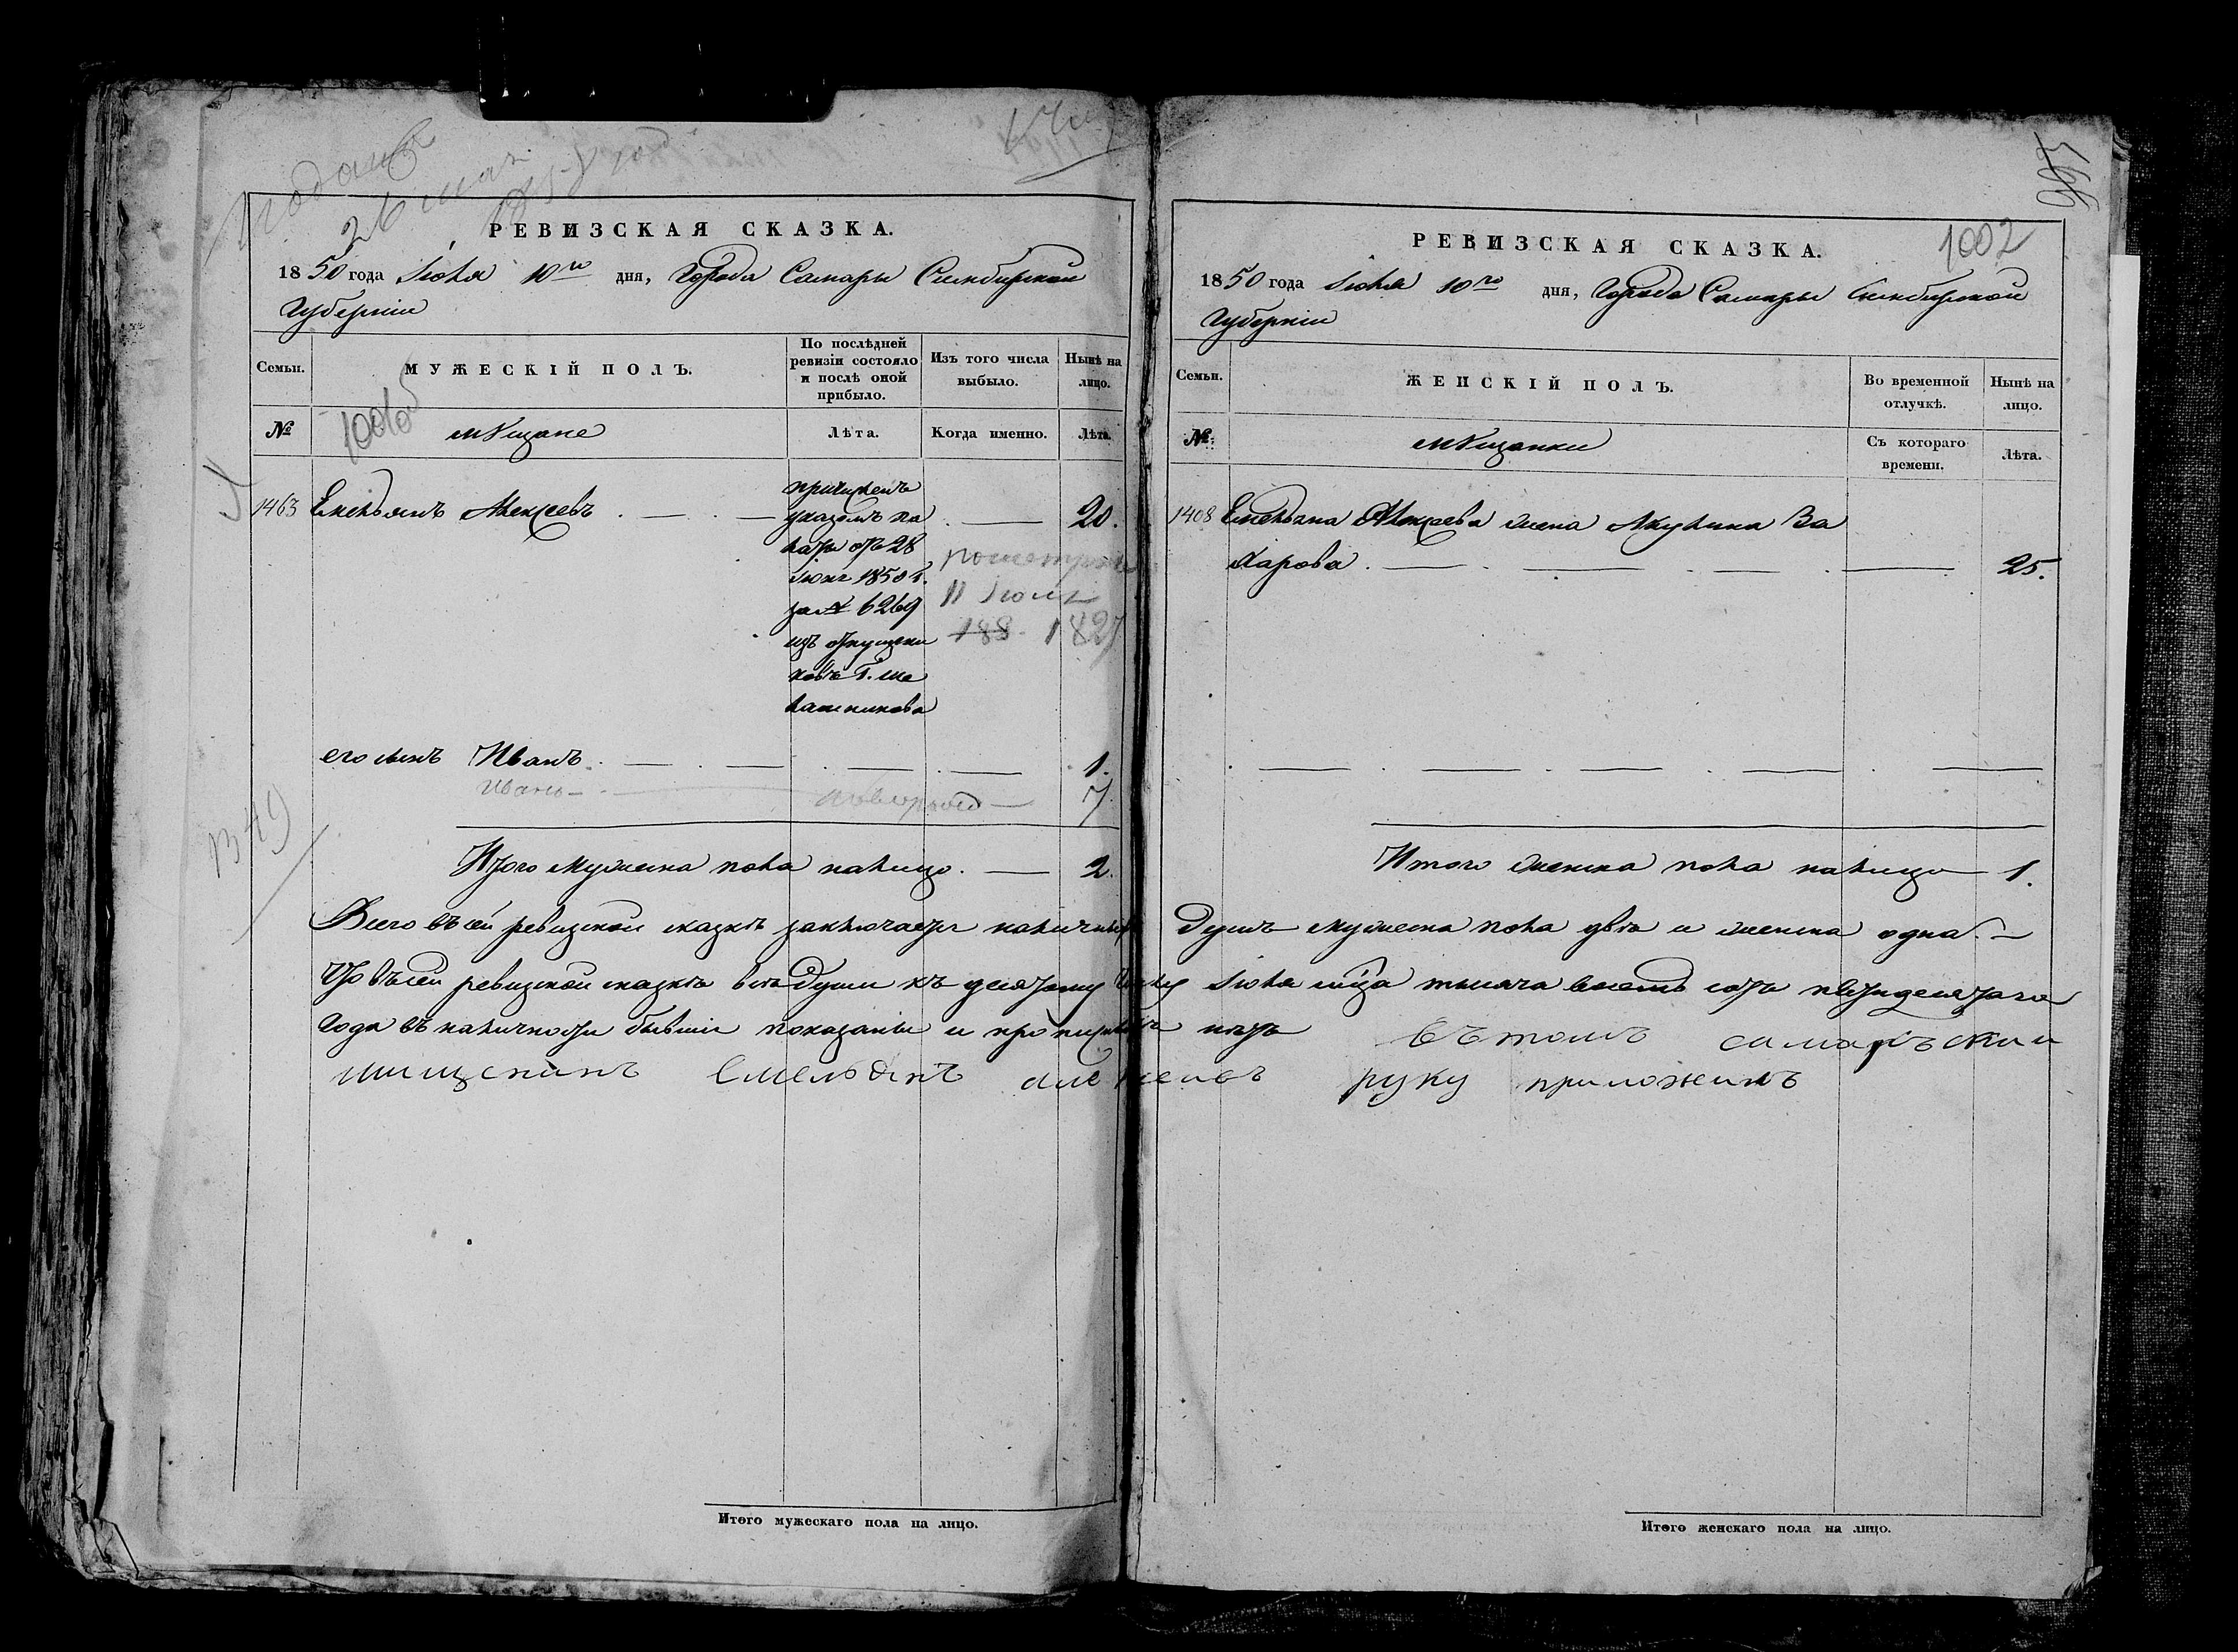 РЕВИЗСКАЯ СКАЗКА.
1850 года Іюля 10го дня, Города Самары Симбирской
Губерніи
Семьи. МУЖЕСКІЙ ПОЛЪ. По послѣдней ревизіи состояло и послѣ оной прибыло. Изъ того числа выбыло. Нынѣ на лицо.
№ мѣщане Лѣта. Когда именно. Лѣта.
1463 Емельянъ Алексеевъ 20.
причисленъ
указомъ па
латы отъ 28
Іюня 1850 г.
за № 6269
изъ отпущени
ковъ Г. Ше
лашникова
11 Іюля
1827
его сынъ Иванъ 1.
Иванъ 7
Итого мужеска пола налицо. 2.
1349
РЕВИЗСКАЯ СКАЗКА. 1002
1850 года Іюля 10го дня, Города Самары Симбирской
Губерніи
Семьи. ЖЕНСКІЙ ПОЛЪ. Во временной отлучкѣ. Нынѣ на лицо.
№ мѣщанки Съ котораго времени. Лѣта.
1408 Емельяна Алексеева жена Акулина За
харова 25.
Итого женска пола налицо 1.
Всего въ сей ревизской сказкѣ заключается наличныхъ душъ мужеска пола двѣ и женска одна.
Что въ сей ревизской сказкѣ всѣ души къ десятому числу Іюля мца тысяча восемь сотъ пятидесятаго
года въ наличности бывшіе показаны и прописныхъ нѣтъ въ томъ самарьскии
мищенинъ Емельянъ алексеивъ руку приложилъ
Итого мужескаго пола на лицо.
Итого женскаго пола на лицо.